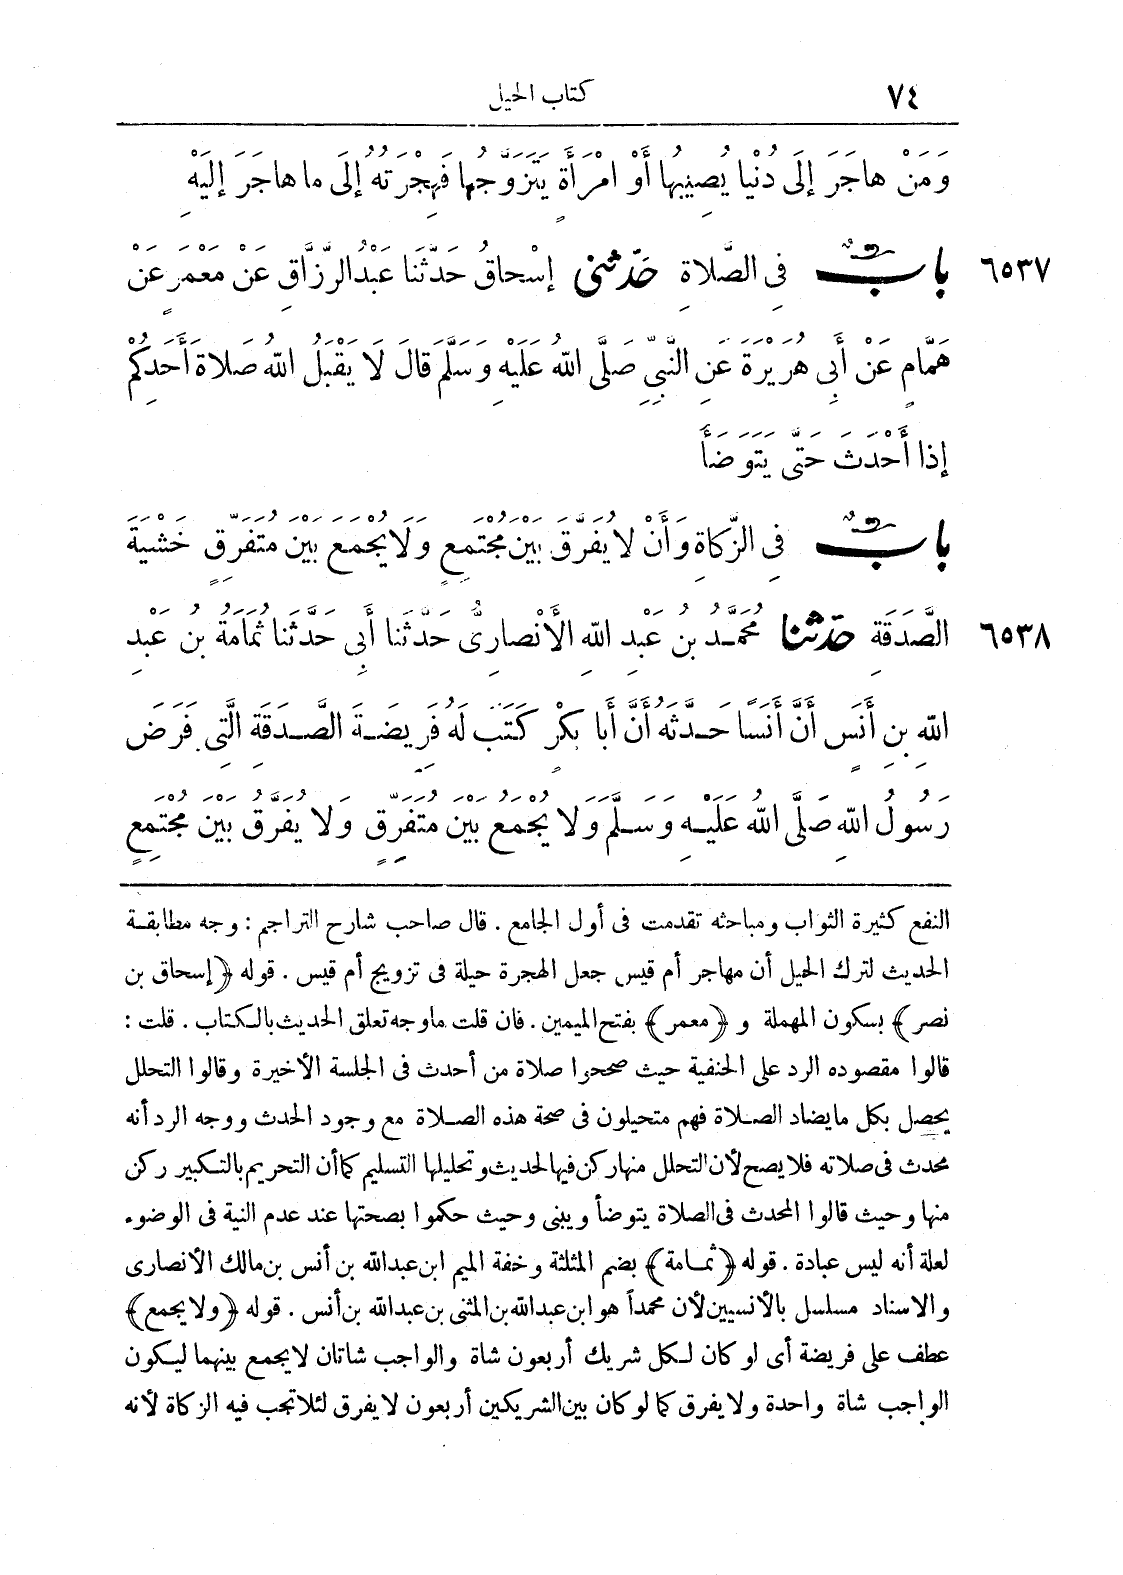 ٧٤
كتاب الحيل
وَمَنْ هاجَرَ إِلَى دُنْيا يُصِيبُها أَوْ امْرَأَةٍ يَتَزَوَّجُها فَهِجْرَتُهُ إِلَى ما هاجَرَ إِلَيْهِ
٦٥٣٧ بابٌ فِي الصَّلاةِ حَدَّثَنِي إِسْحاقُ حَدَّثَنا عَبْدُ الرَّزَّاقِ عَنْ مَعْمَرٍ عَنْ
هَمَّامٍ عَنْ أَبِي هُرَيْرَةَ عَنِ النَّبِيِّ صَلَّى اللهُ عَلَيْهِ وَسَلَّمَ قالَ لَا يَقْبَلُ اللهُ صَلاةَ أَحَدِكُمْ
إِذا أَحْدَثَ حَتَّى يَتَوَضَّأَ
بابٌ فِي الزَّكاةِ وَأَنْ لا يُفَرَّقَ بَيْنَ مُجْتَمِعٍ وَلَا يُجْمَعَ بَيْنَ مُتَفَرِّقٍ خَشْيَةَ
٦٥٣٨ الصَّدَقَةِ حَدَّثَنا مُحَمَّدُ بنُ عَبْدِ اللهِ الأَنْصارِيُّ حَدَّثَنا أَبِي حَدَّثَنا ثُمامَةُ بنُ عَبْدِ
اللهِ بنِ أَنَسٍ أَنَّ أَنَسًا حَدَّثَهُ أَنَّ أَبا بَكْرٍ كَتَبَ لَهُ فَرِيضَةَ الصَّدَقَةِ الَّتِي فَرَضَ
رَسُولُ اللهِ صَلَّى اللهُ عَلَيْهِ وَسَلَّمَ وَلا يُجْمَعُ بَيْنَ مُتَفَرِّقٍ وَلا يُفَرَّقُ بَيْنَ مُجْتَمِعٍ
النفع كثيرة الثواب ومباحثه تقدمت فى أول الجامع . قال صاحب شارح التراجم : وجه مطابقة
الحديث لترك الحيل أن مهاجر أم قيس جعل الهجرة حيلة فى تزويج أم قيس . قوله ﴿إسحاق بن
نصر﴾ بسكون المهملة و ﴿معمر﴾ بفتح الميمين . فان قلت ماوجه تعلق الحديث بالكتاب . قلت :
قالوا مقصوده الرد على الحنفية حيث صححوا صلاة من أحدث فى الجلسة الأخيرة وقالوا التحلل
يحصل بكل مايضاد الصلاة فهم متحيلون فى صحة هذه الصلاة مع وجود الحدث ووجه الرد أنه
محدث فى صلاته فلا يصح لأن التحلل منها ركن فيها لحديث وتحليلها التسليم كما أن التحريم بالتكبير ركن
منها وحيث قالوا المحدث فى الصلاة يتوضأ ويبنى وحيث حكموا بصحتها عند عدم النية فى الوضوء
لعلة أنه ليس عبادة . قوله ﴿ثمامة﴾ بضم المثلثة وخفة الميم ابن عبدالله بن أنس بن مالك الأنصارى
والاسناد مسلسل بالأنسيين لأن محمداً هو ابن عبدالله بن المثنى بن عبدالله بن أنس . قوله ﴿ولا يجمع﴾
عطف على فريضة أى لو كان لكل شريك أربعون شاة والواجب شاتان لا يجمع بينهما ليكون
الواجب شاة واحدة ولا يفرق كما لو كان بين الشريكين أربعون لا يفرق لئلا تجب فيه الزكاة لأنه